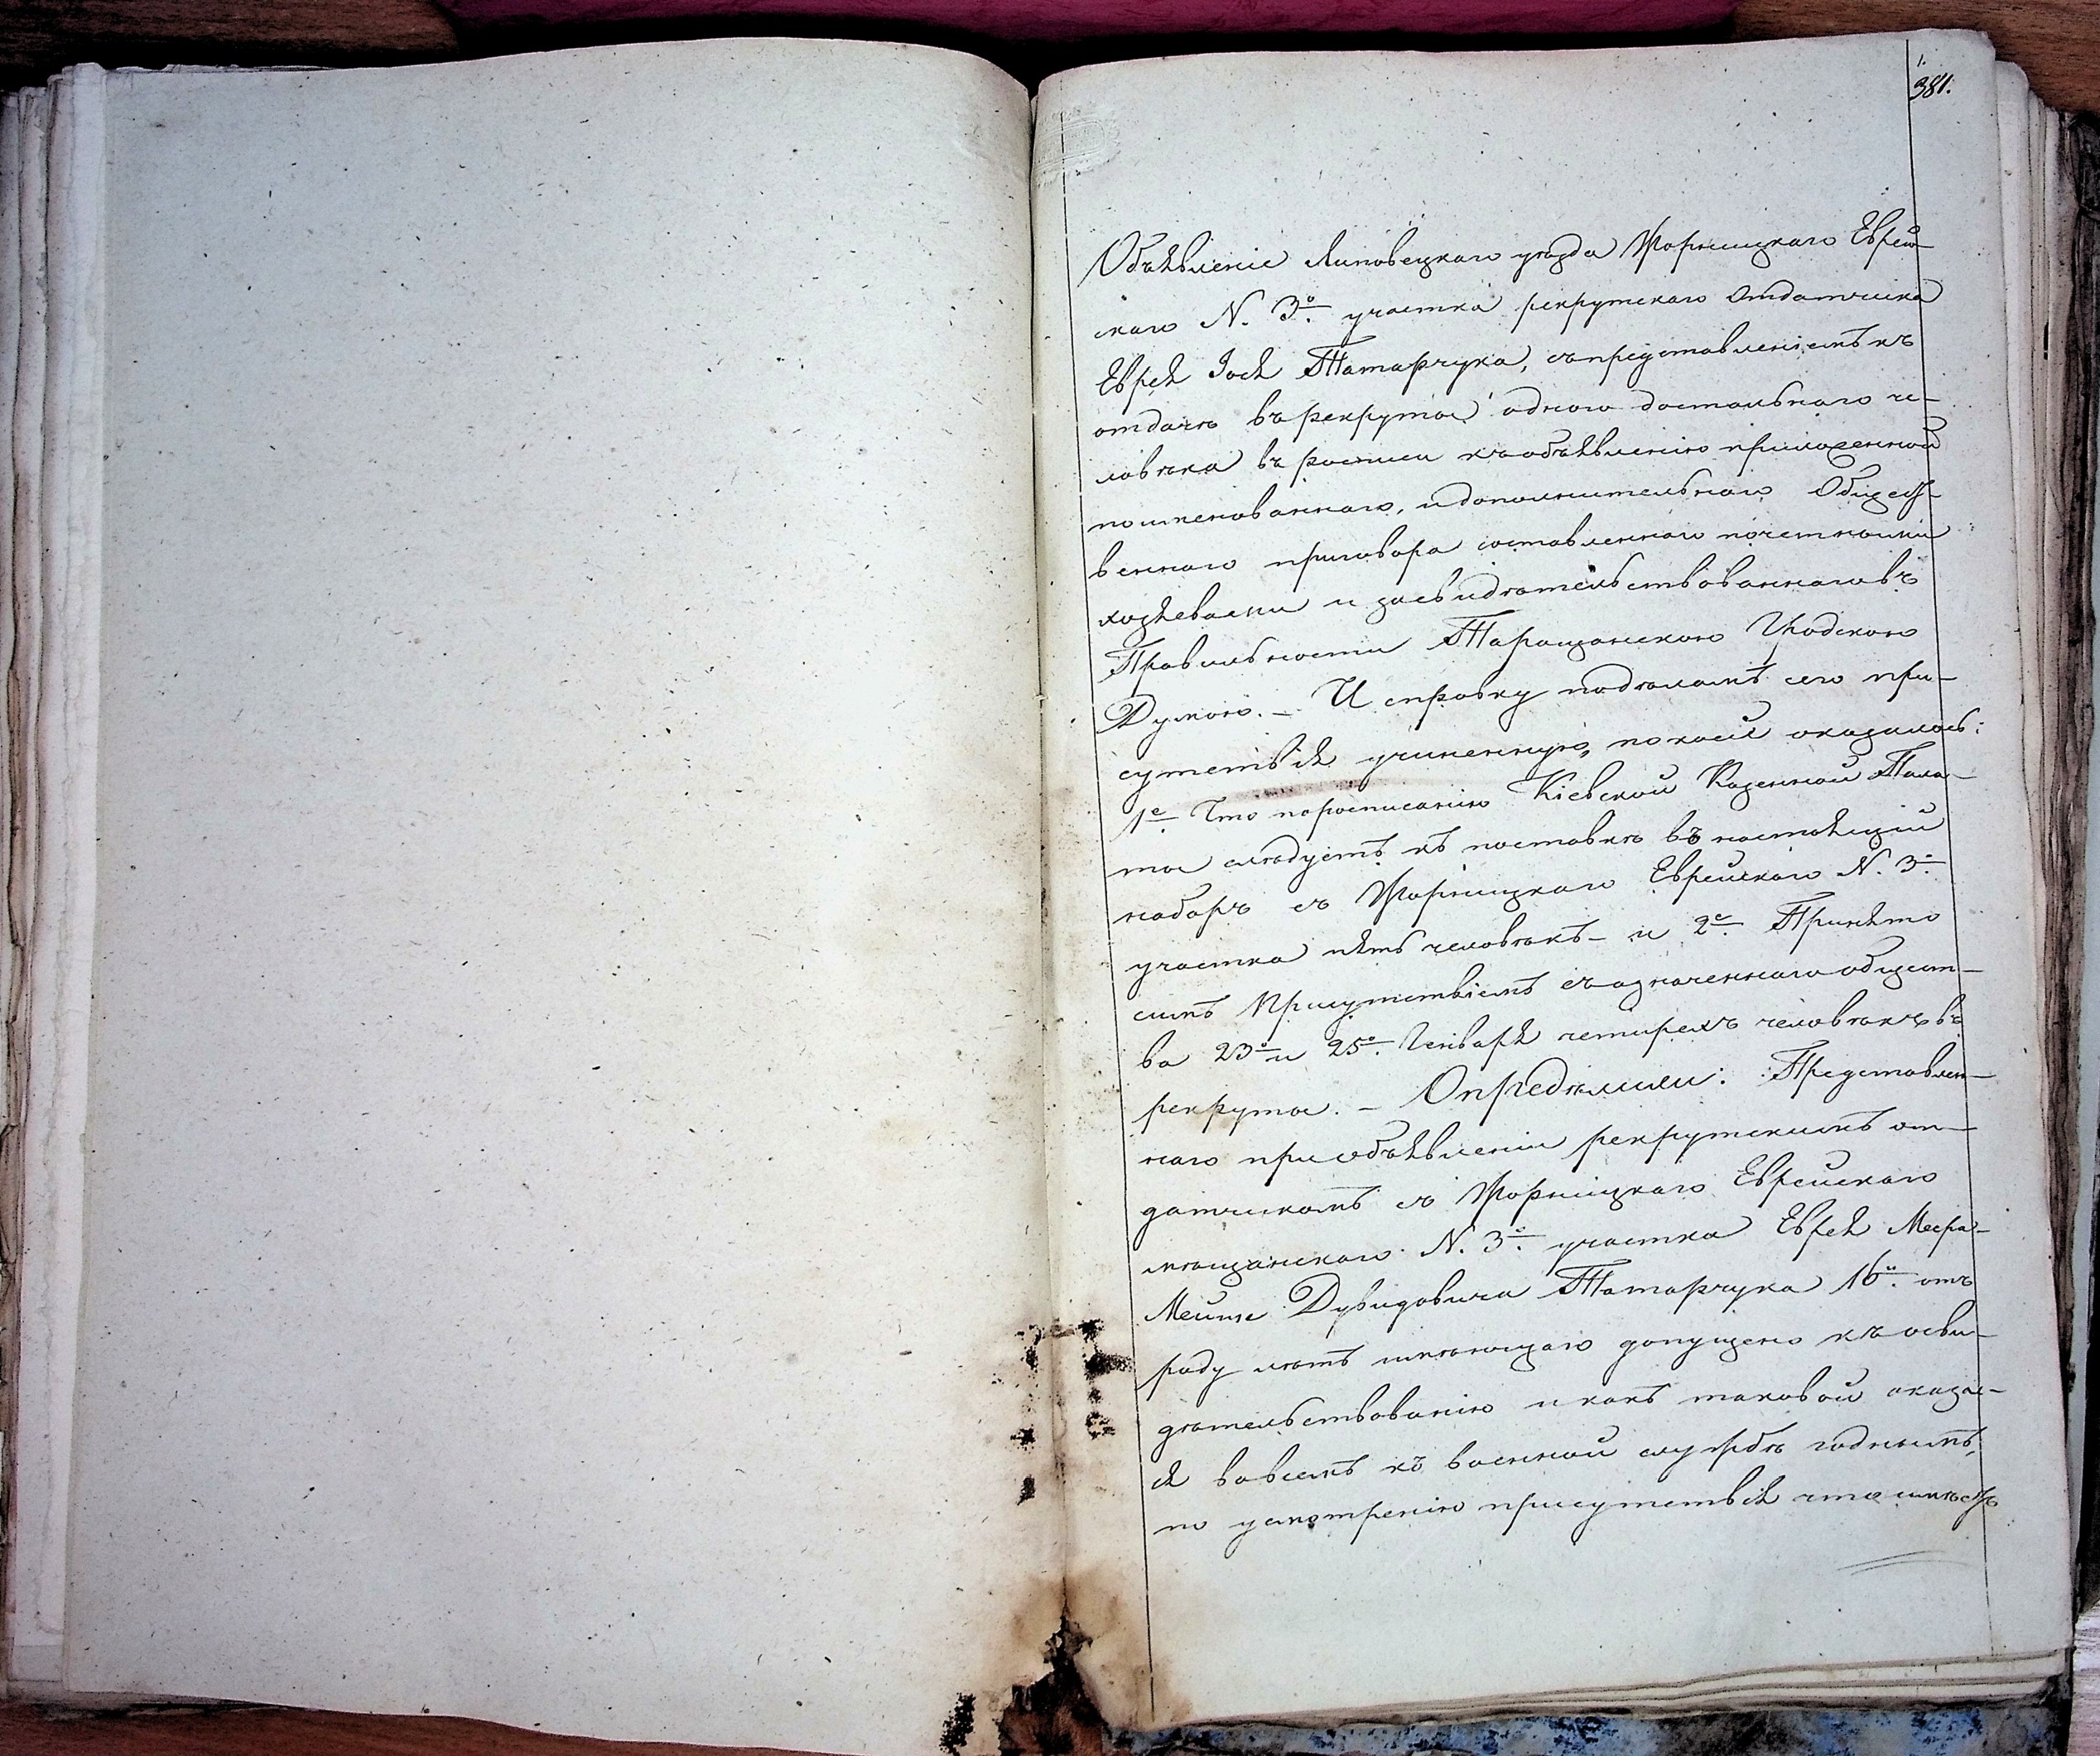 381.
Объявленіе Липовецкаго уѣзда Жорнищкаго Еврей-
скаго N. 3º участка рекрутскаго Отдатчика
Еврея Іося Татарчука, съ представленіемъ къ
отдачѣ въ рекруты одного достальнаго че-
ловѣка въ росписи къ объявленію приложенной
поименованнаго, и дополнительнаго Общест-
веннаго приговора составленнаго почетными
хозяевами и засвидѣтельствованнаго въ
Правильности Таращанскою Градскою
Думою. – И справку подѣламъ сего при-
сутствія учиненную, по коей оказалось:
1е. Что поросписанію Кіевской Казенной Пала-
ты слѣдуетъ къ поставкѣ въ настоящій
наборъ съ Жорнищкаго Еврейскаго N. 3º
участка пять человѣкъ – и 2е. Принято
симъ Присутствіемъ съ означеннаго общест-
ва 23º и 25º. Генваря четырехъ человѣкъ въ
рекруты. – Опредѣлили: Представлен-
наго при объявленіи рекрутскимъ от-
датчикомъ съ Жорнищкаго Еврейскаго
мѣщанскаго N. 3º участка Еврея
Дувидовича Татарчука 16и. отъ
роду лѣтъ имѣющаго допущено къ осви-
дѣтельствованію и какъ таковой оказал-
ся вовсемъ къ военной службѣ годнымъ,
по усмотренію присутствія что имѣетъ